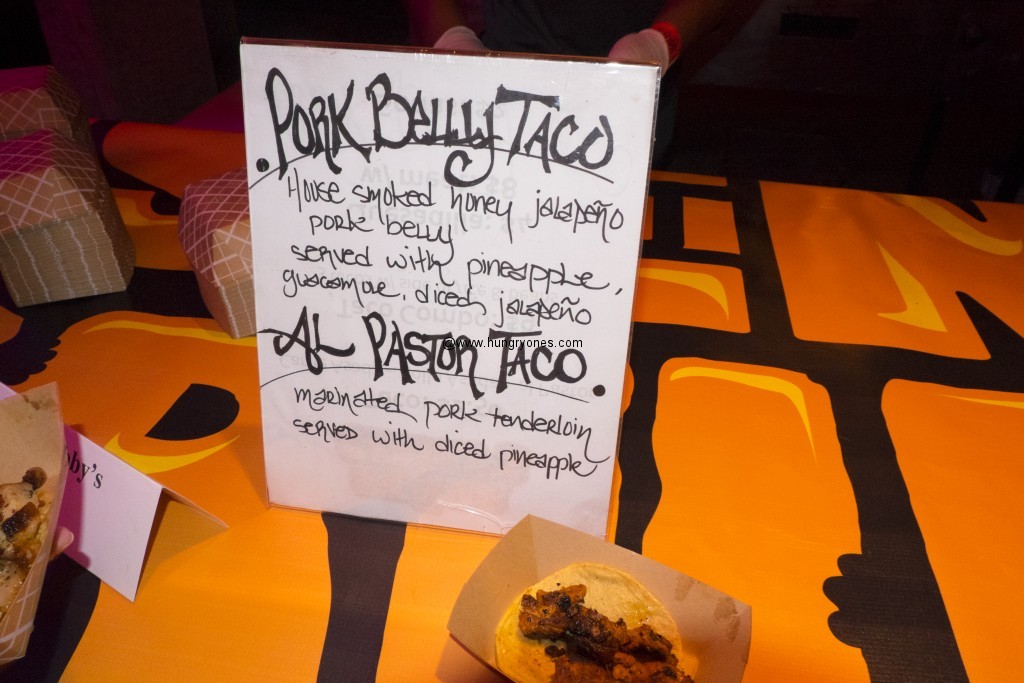 . PORK BELLY TACO
House smoked honey jalapeño
pork belly
served with pineapple,
guacamole, diced jalapeño
AL PASTOR TACO.
marinated pork tenderloin
served with diced pineapple
©www.hungryones.com
by's